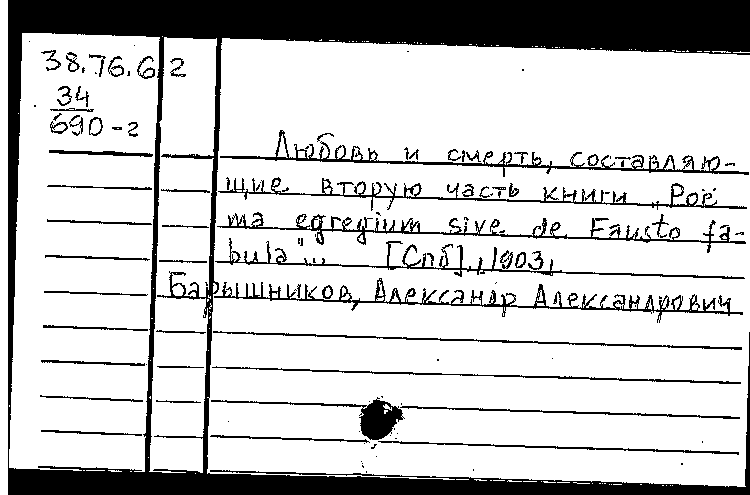 38.76.6.2
34
690-2
Любовь и смерть, составляю-
щие вторую часть книги „Poё
ma egregium sive de Fausto fa-
bula"... [Спб], 1903,
Барышников, Александр Александрович